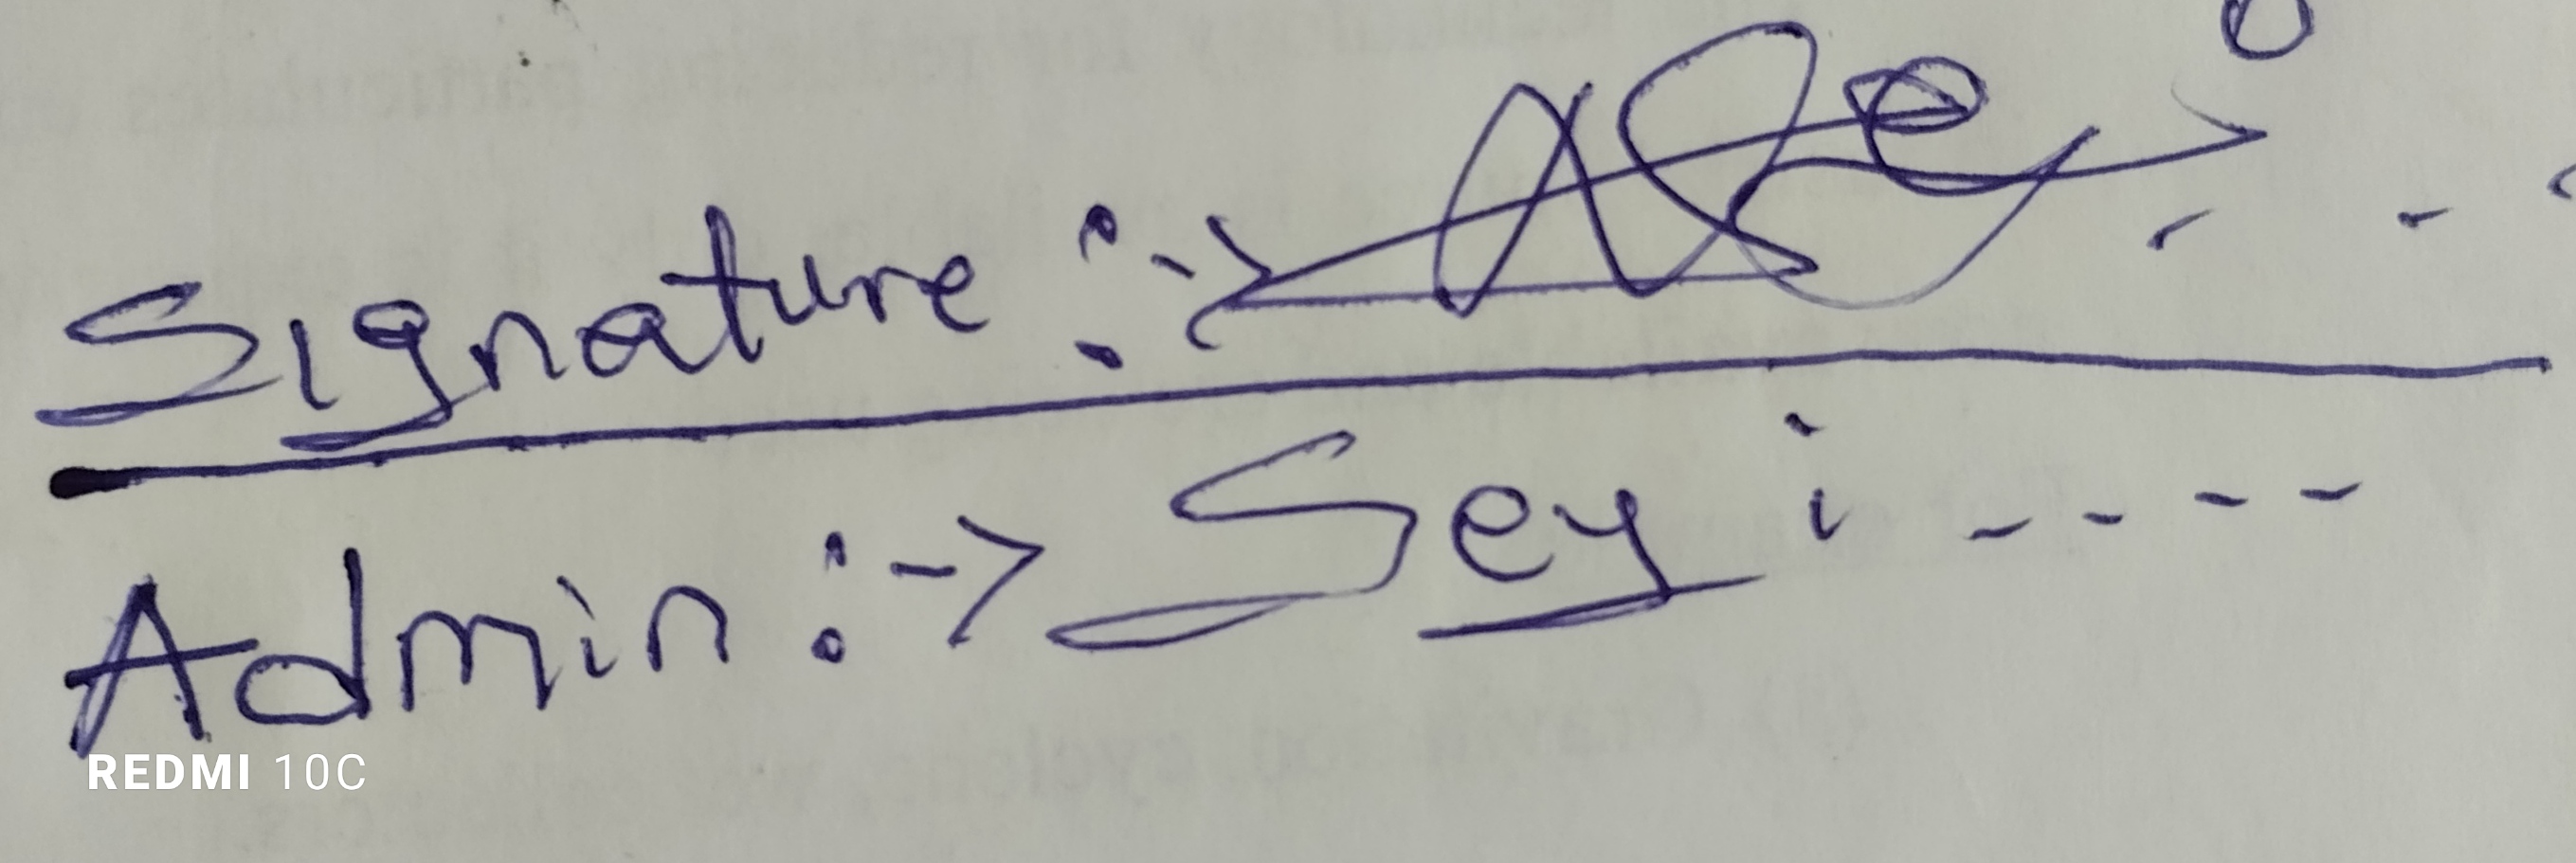 Signature :->
Admin :-> Sey i ----
REDMI 10C